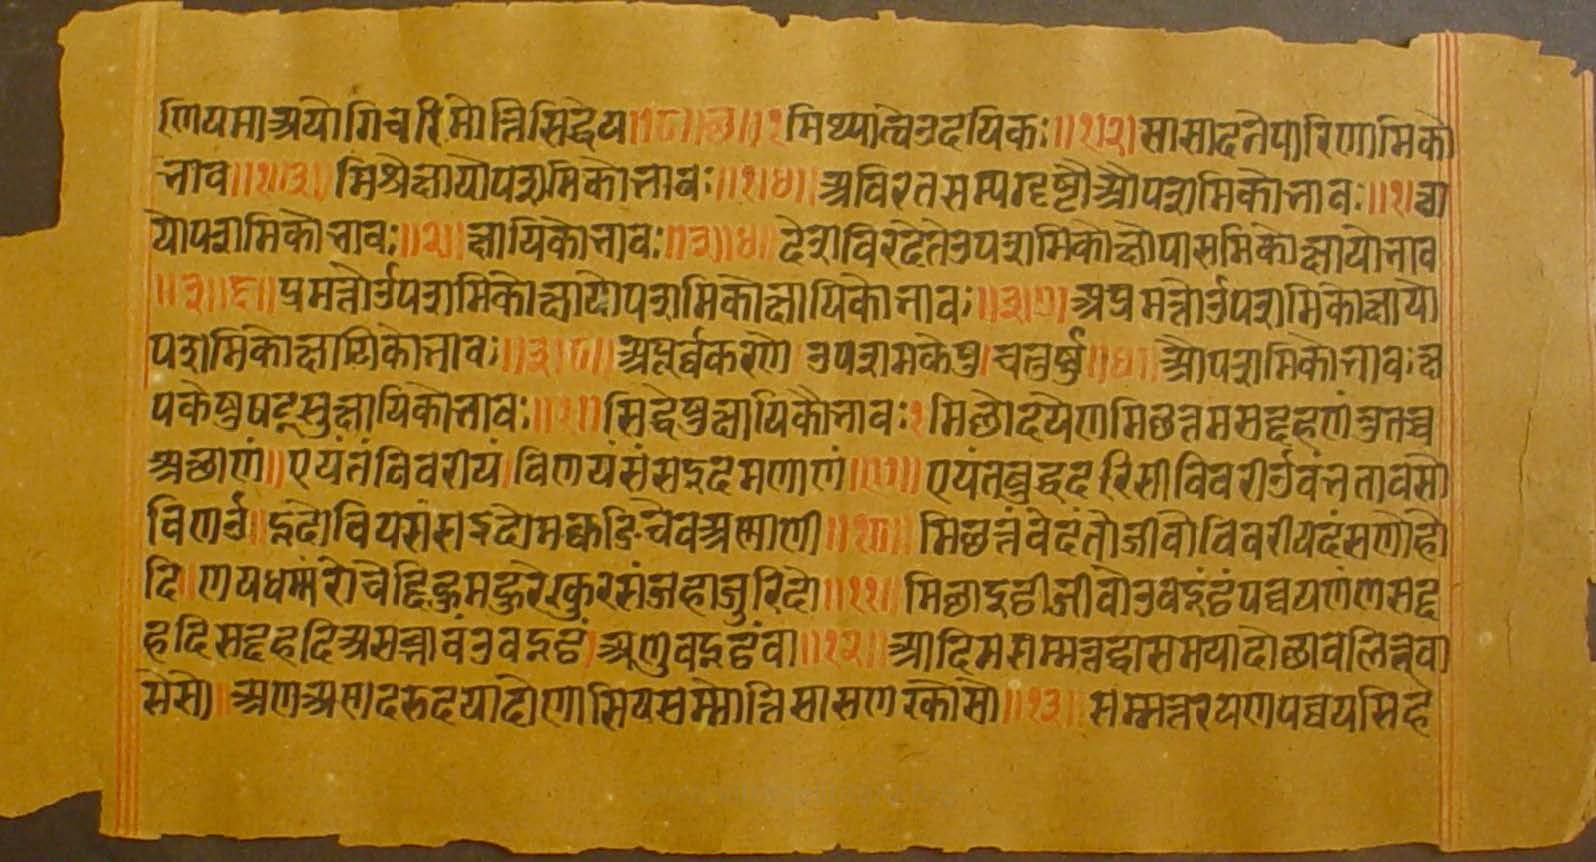 णियमा अयोगिचरिमोत्ति सिद्धेय ॥१०॥ छ ॥ १ मिथ्यात्वे उदयिकः ॥१।२। सासादने पारिणामिको
भाव ॥१।३। मिश्रे क्षायोपशमिको भावः ॥१।४॥ अविरतसम्यग्दृष्टौ औपशमिको भावः ॥१। क्षा
योपशमिको भावः ॥२। क्षायिको भावः ॥३॥४॥ देशविरदेते उपशमिको क्षोपासमिको क्षायो भाव
॥३॥६॥ प्रमत्तोर्उपशमिको क्षायोपशमिको क्षायिको भावः ॥३।७। अप्रमत्तोर्उपशमिको क्षायो
पशमिको क्षायिको भावः ॥३।८॥ अपूर्व्वकरणे उपशमकेषु चतुर्षु ॥४॥ औपशमिको भावः क्ष
पकेषु षट्सु क्षायिको भावः ॥१॥ सिद्धेषु क्षायिकौ भावः १ मिछोदयेण मिछत्तमसद्दहणं तु तच्च
अछाणं ॥ एयंतं विवरीयं। विणयं संसइदमणाणं ॥९॥ एयंत बुद्धदरिसी विवरीर्उ वंत तावसो
विणर्उ ॥ इंदो विय संसइदो मक्कडि चेव अणाणी ॥१०॥ मिछत्तं वेदंतो जीवो विवरीयदंसणो हो
दि ॥ णय धम्मं रोचेदि हु महुरं खु रसं जहा जुरिदो ॥११॥ मिछाइठी जीवो उवइठं पवयणं ण सद्द
हदि सद्दहदि असब्भावं उवइठं। अणुवइठं वा ॥१२॥ आदिमसम्मत्तद्धासमयादो छावलित्तवा
सेसे ॥ अणअणदरुदयादो णासियसम्मोत्ति सासणरकोसो ॥१३॥ सम्मत्तरयणपव्वयसिह